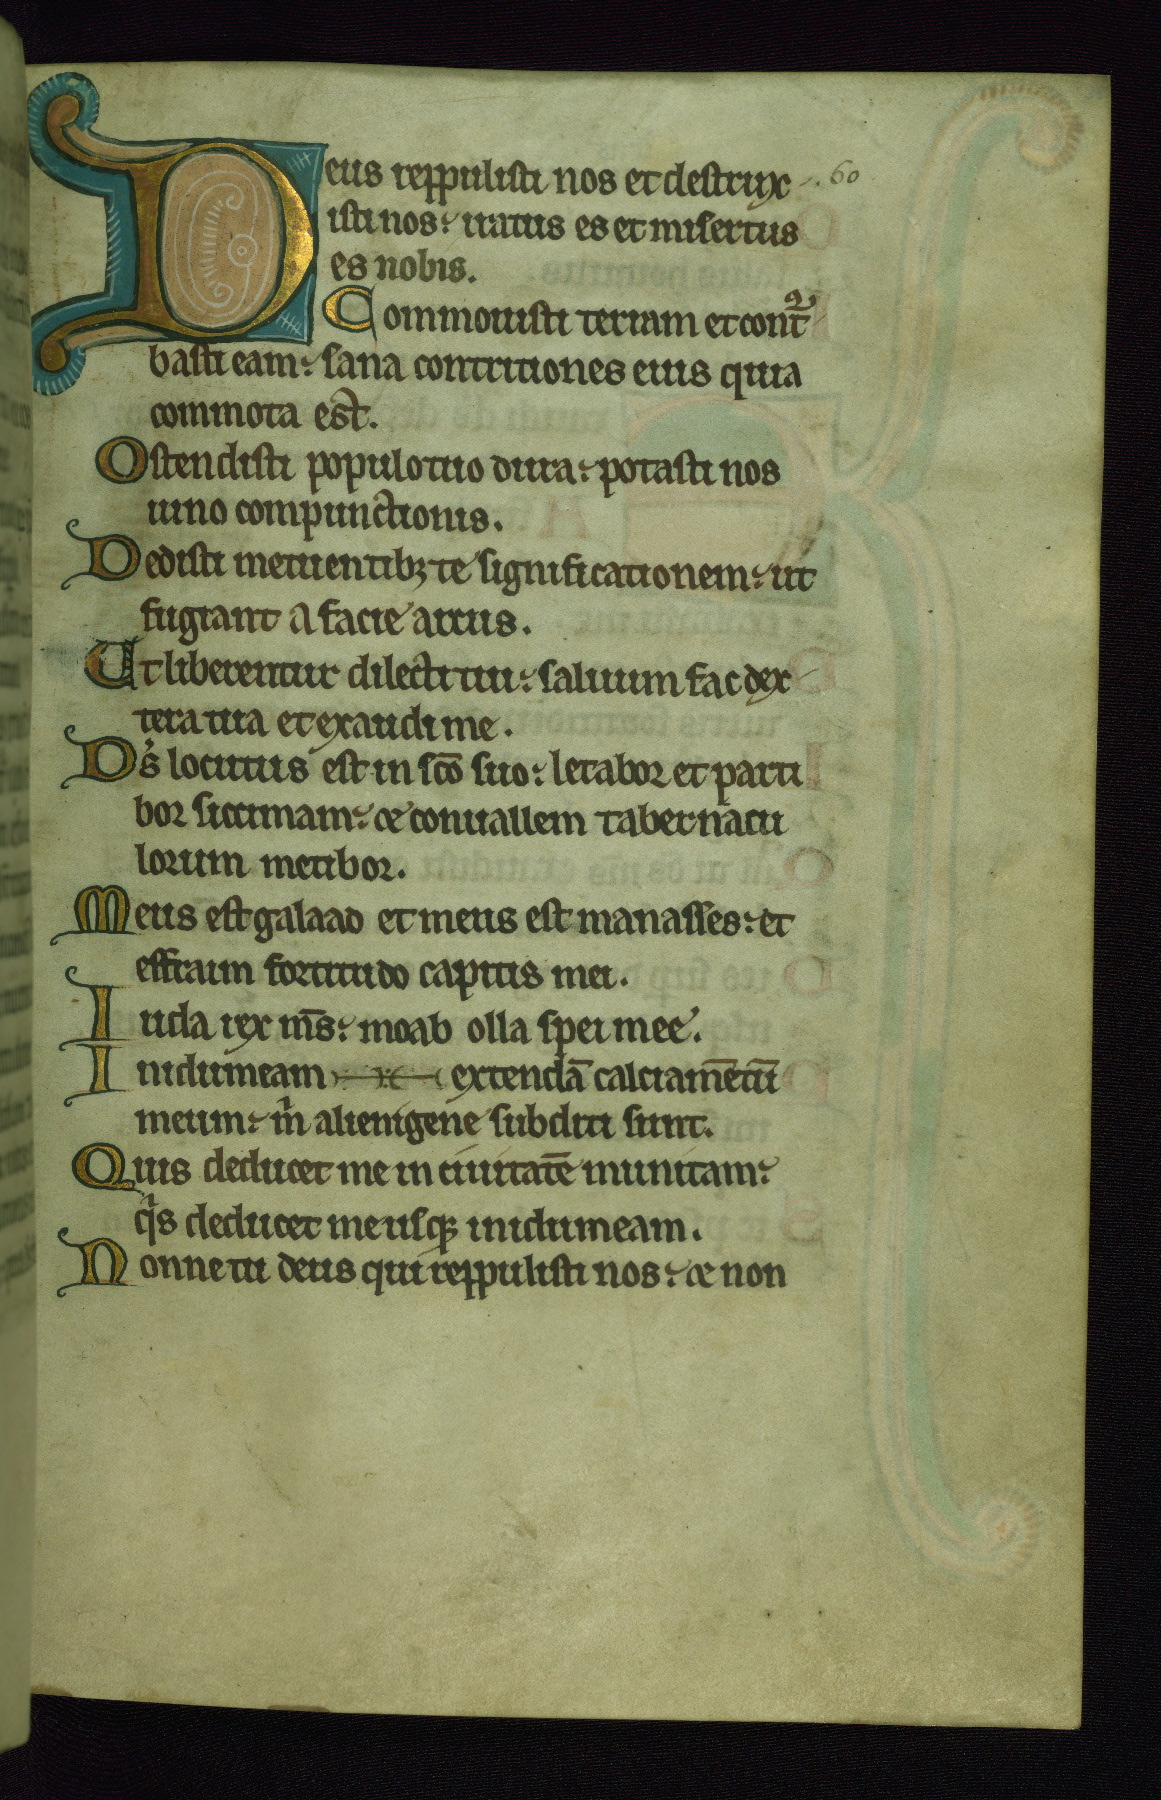 Deus reppulisti nos et destrux 60
isti nos: iratus es et misertus
es nobis.
Commouisti terram et contͣ
basti eam: sana contritiones eius quia
commota est.
Ostendisti populo tuo dura: potasti nos
uino compunctionis.
Dedisti metuentibꝫ te significationem: ut
fugiant a facie arcus.
Ut liberentur dilecti tui: saluum fac dex
tera tua et exaudi me.
Ds̄ locutus est in sc̄o suo: letabor et parti
bor siccimam: & conuallem tabernacu
lorum metibor.
Meus est galaad et meus est manasses: et
effraim fortitudo capitis mei.
Iuda rex ms̄: moab olla spei mee.
In idumeam extendā calciam̄etū
meum: m̍ alienigene subditi sunt.
Quis deducet me in ciuitatē munitam:
qͥs deducet me usqꝫ in idumeam.
Nonne tu deus qui reppulisti nos: & non